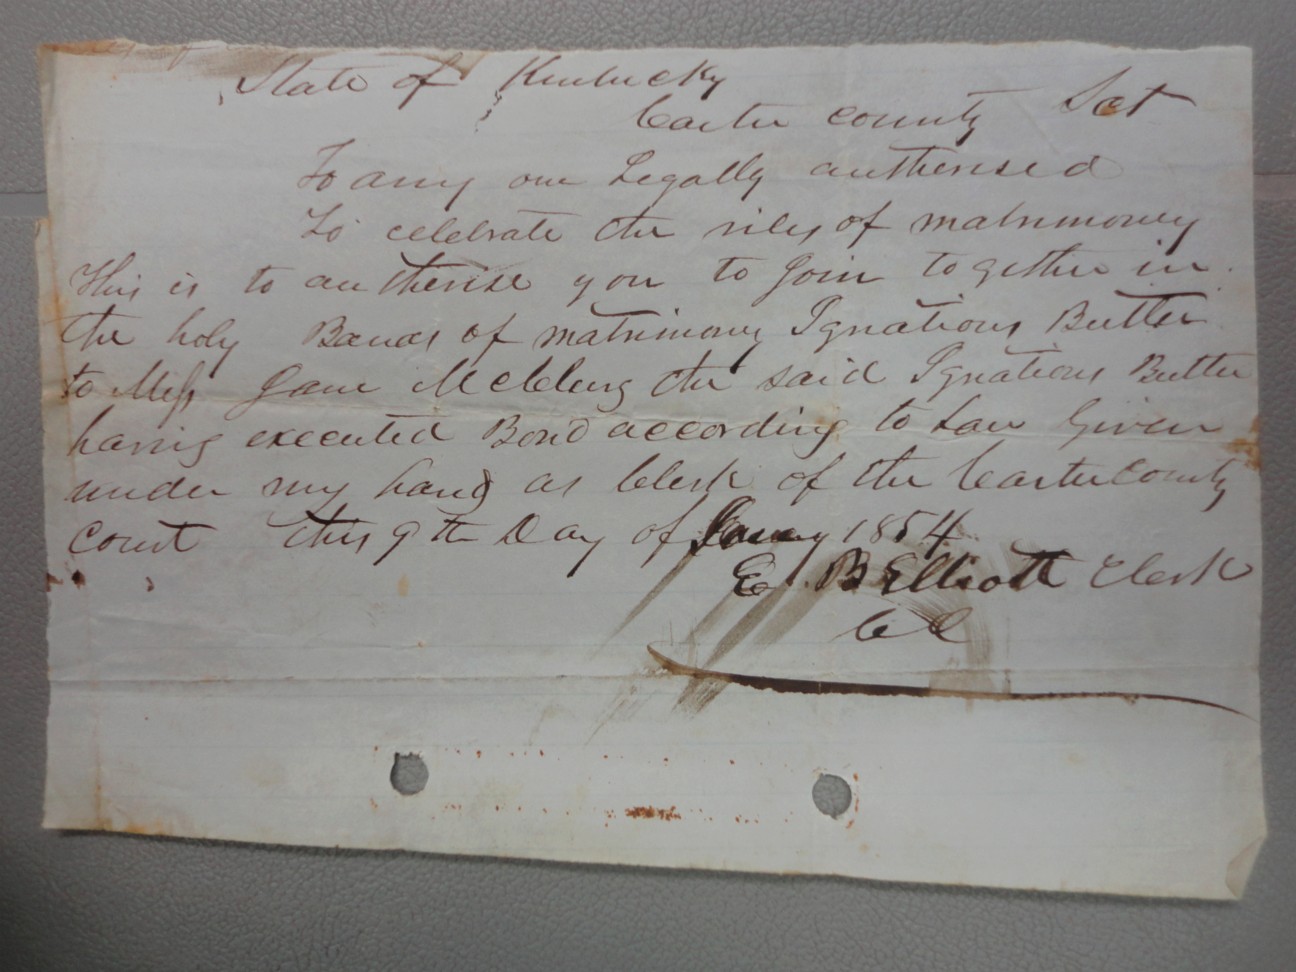 State of Kentucky
Carter county Sct
To any one Legally autherised
To celebrate the rites of matrimoney
This is to autherise you to Join together in
the holy Bands of matrimony Ignatious Butler
to Miss Jane McClung the said Ignatious Butler
having executed Bond according to Law Given
under my hand as Clerk of the Carter County
Court this 9th Day of Jany 1854
E. B Elliott Clerk